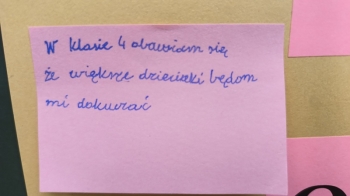 W klasie 4 obawiam się
że większe dzieciaki będom
mi dokuczać